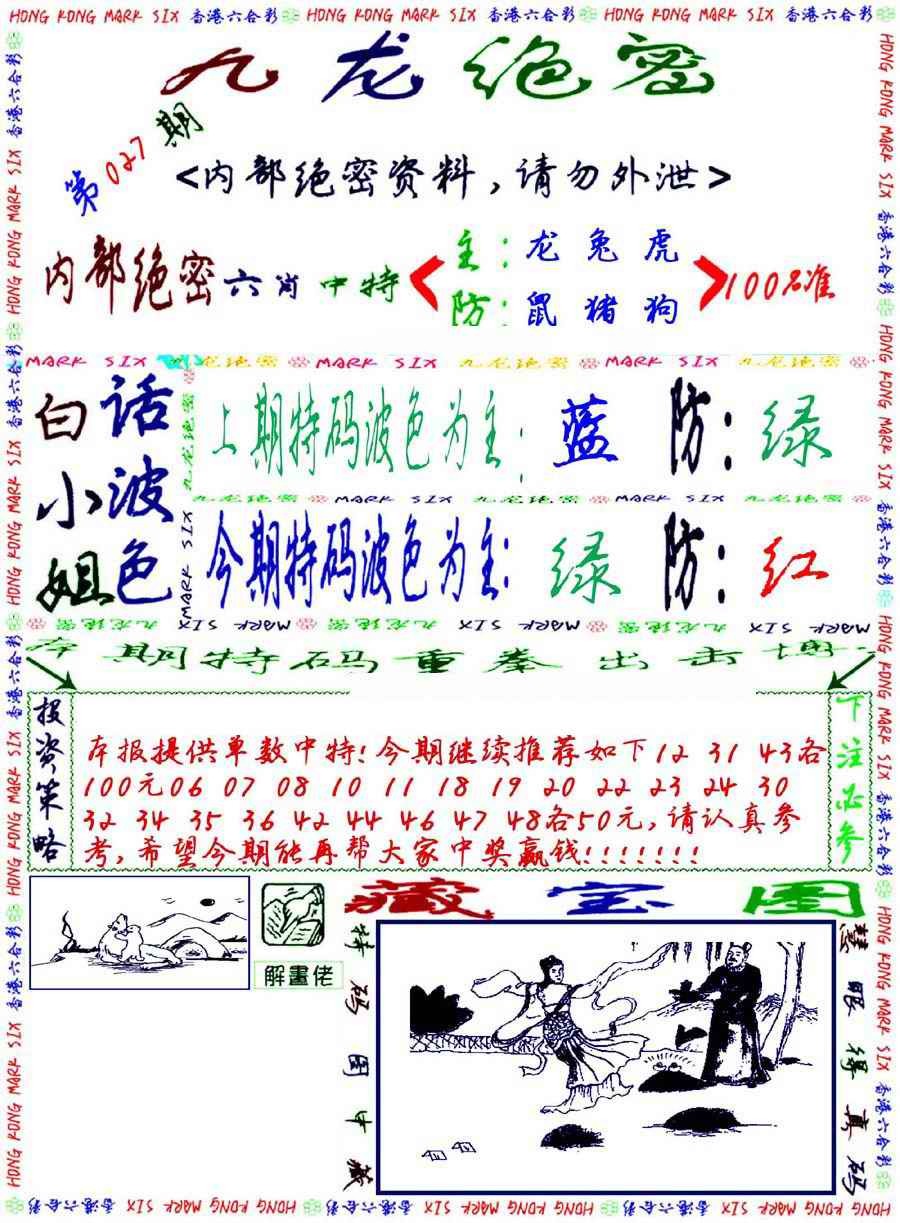 HONG KONG MARK SIX 香港六合彩 HONG KONG MARK SIX 香港六合彩 HONG KONG MARK SIX 香港六合彩
九龙绝密
第027期
<内部绝密资料,请勿外泄>
内部绝密六肖中特
主:龙兔虎
防:鼠猪狗
100%准
MARK SIX 九龙绝密 MARK SIX 九龙绝密 MARK SIX 九龙绝密
白话
小波
姐色
上期特码波色为主:蓝 防:绿
九龙绝密 MARK SIX 九龙绝密 MARK SIX 九龙绝密
今期特码波色为主:绿 防:红
MARK SIX 九龙绝密 MARK SIX 九龙绝密 MARK SIX 九龙绝密
本期特码重拳出击
投资策略
下注必参
本报提供单数中特!今期继续推荐如下12 31 43各
100元06 07 08 10 11 18 19 20 22 23 24 30
32 34 35 36 42 44 46 47 48各50元,请认真参
考,希望今期能再帮大家中奖赢钱!!!!!!!
解畫佬
藏宝图
特码图中藏
慧眼得真码
HONG KONG MARK SIX 香港六合彩 HONG KONG MARK SIX 香港六合彩 HONG KONG MARK SIX 香港六合彩